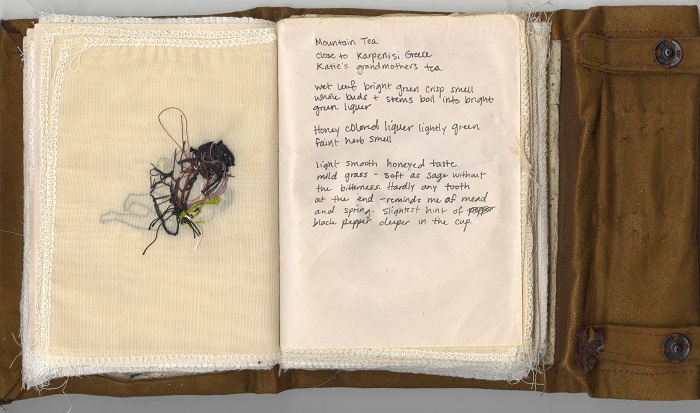 Mountain Tea
close to Karpenisi Greece
Katie's grandmothers tea
wet leaf bright green crisp smell
whole buds + stems boil into bright
green liquer
Honey colored liquer lightly green
faint herb smell
light smooth honeyed taste
mild grass - soft as sage without
the bitterness. Hardly any tooth
at the end - reminds me of mead
and spring. Slightest hint of pepper
black pepper deeper in the cup